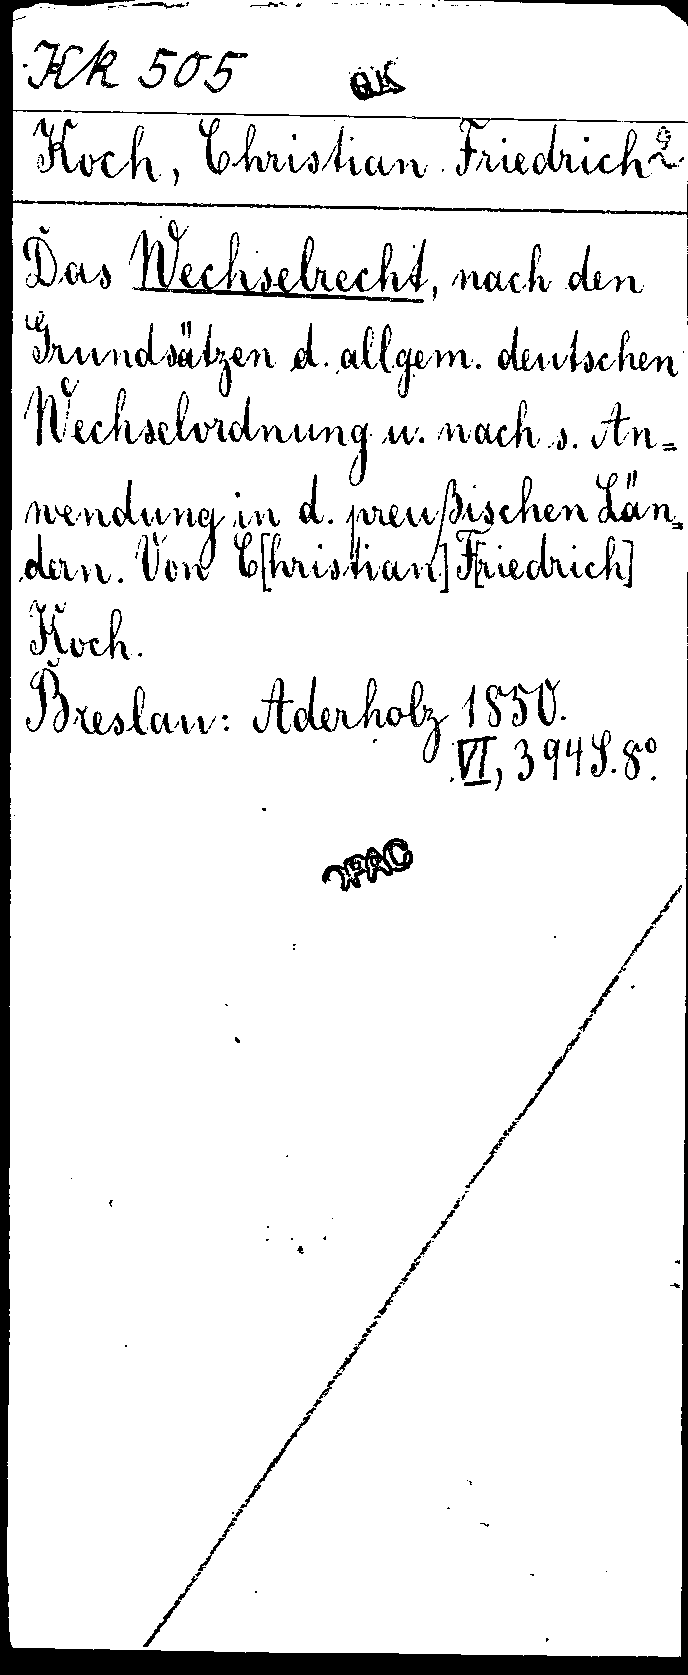 Kk 505
Koch, Christian Friedrich 2
Das Wechselrecht, nach den
Grundsätzen d. allgem. deutschen
Wechselordnung u. nach s. An=
wendung in d. preußischen Län=
dern. Von C[hristian] F[riedrich]
Koch.
Breslau: Aderholz 1850.
VI, 394 S. 8°.
OPAC